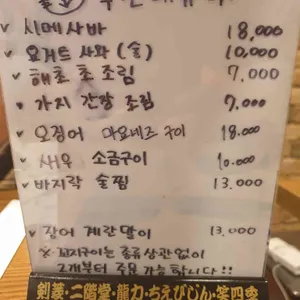 시메사바 18,000
요거트 사와 (술) 10,000
해초 초 조림 7,000
가지 간장 조림 7,000
오징어 마요네즈 구이 18.000
새우 소금구이 10.000
바지락 술찜 13.000
장어 계란말이 13.000
※ 꼬치구이는 종류 상관없이
2개부터 주문 가능합니다!!
剣菱・二階堂・龍力・ちえびじん・笑四季